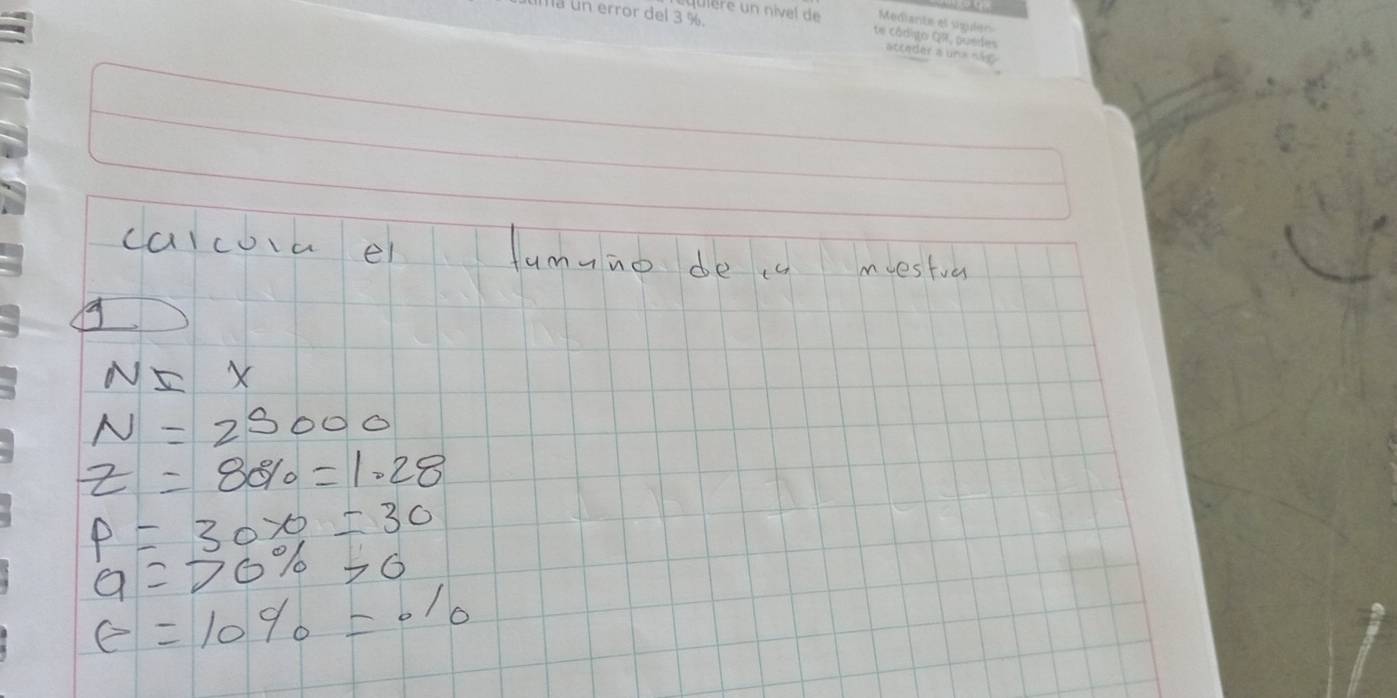 un error del 3 %.
un nivel de
Mediante el siguien-
te código QR, puedes
acceder a una
calcula el tamaño de la muestra
1
N = X
N = 25000
Z = 80% = 1.28
P = 30% = 30
q = 70% 70
e = 10% = .10